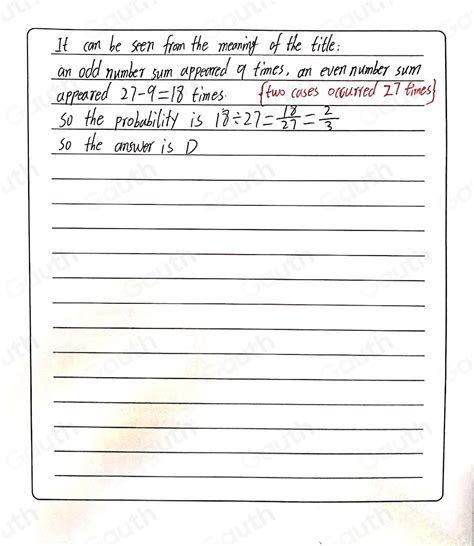 It can be seen from the meaning of the title:
an odd number sum appeared 9 times, an even number sum
appeared 27-9=18 times. {two cases occurred 27 times}
So the probability is 18÷27=18/27=2/3
So the answer is D
Gauth